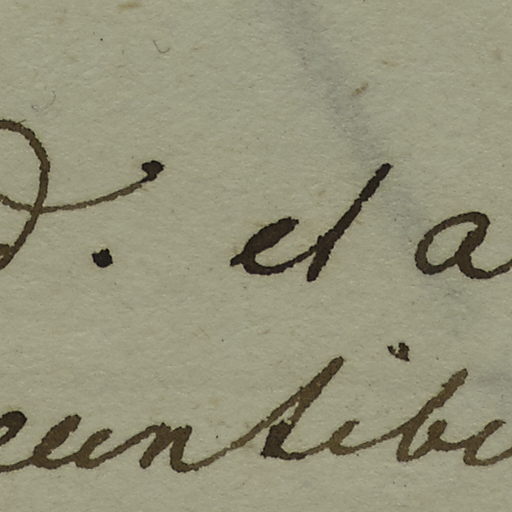 . et a
euntibu